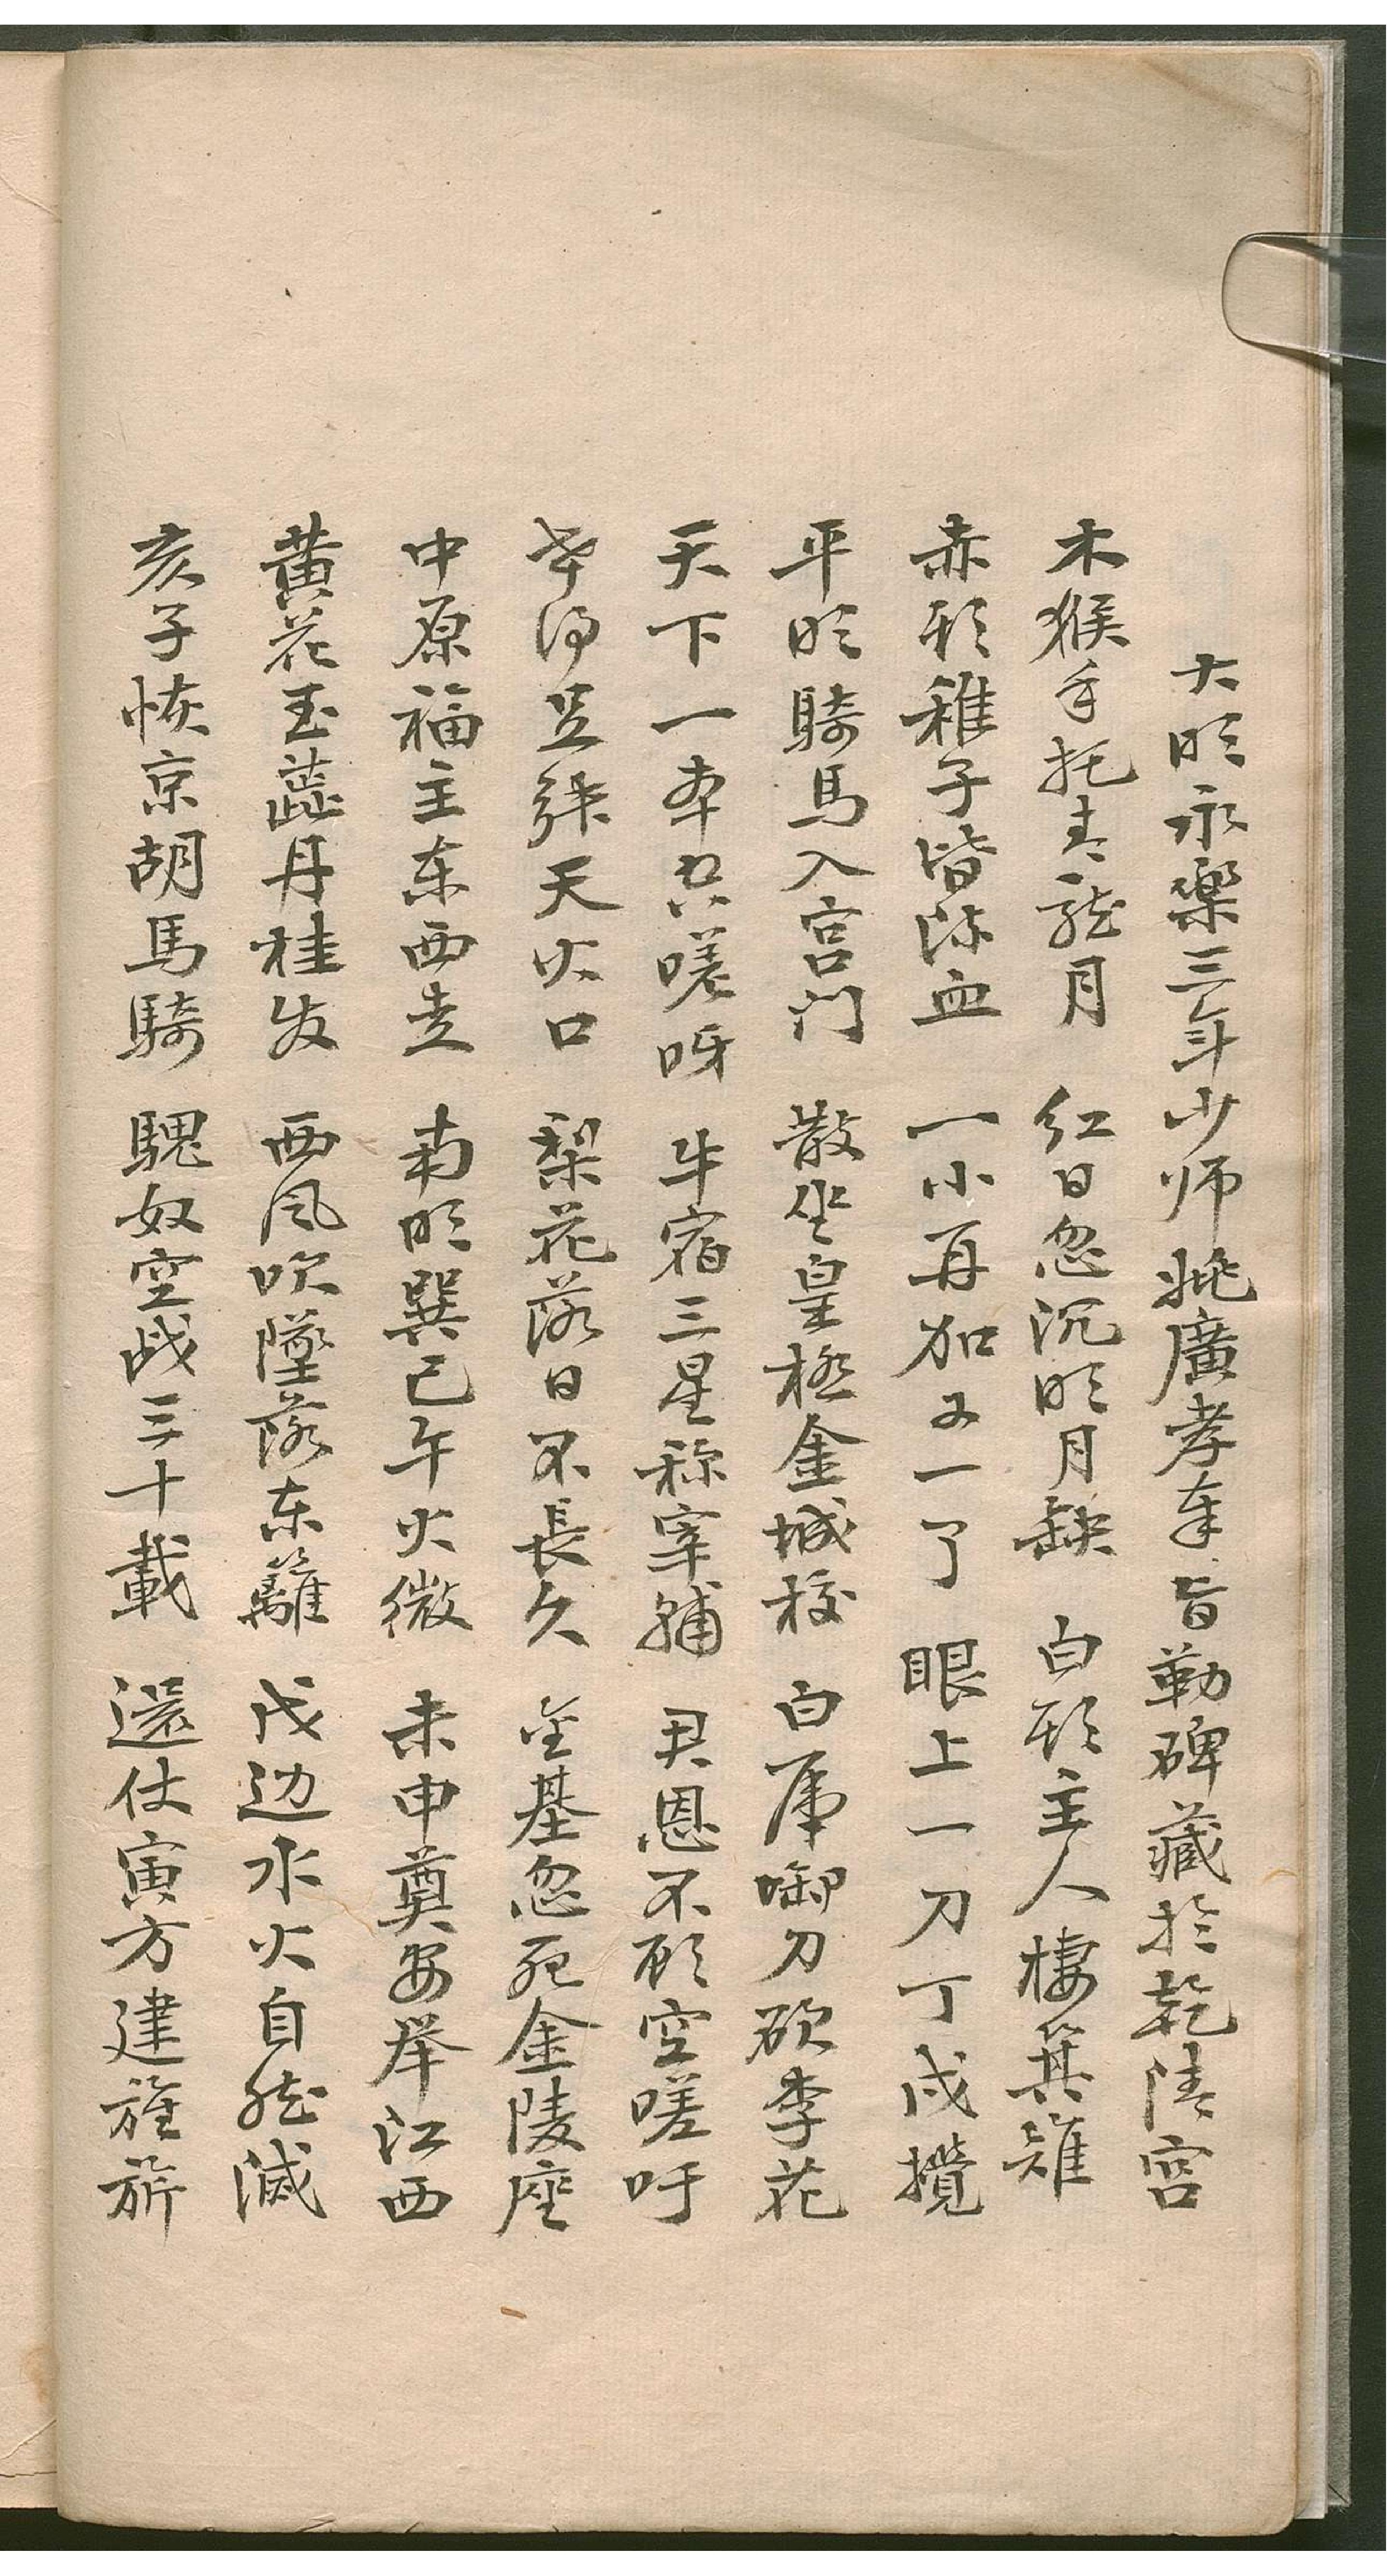 大明永樂三年少师姚廣孝奉旨勒碑藏扵乾清宫
木猴手托青龍月 红日忽沉明月缺 白頭主人棲箕雉
赤頭稚子皆流血 一小再加又一了 眼上一刀丁戌攪
平明騎馬入宫门 散坐皇極金城校 白虎啣刀砍李花
天下一本只嗟呀 牛宿三星称宰輔 君恩不顧空嗟吁
天火口 梨花落日不長久 金基忽死金陵座
中原福主东西走 南明巽巳午火微 未申奠安举江西
黄花玉蕋丹桂发 西风吹墜落东籬 戊边水火自然滅
亥子恢京胡馬騎 騩奴空战三十載 還仕寅方建旌旂